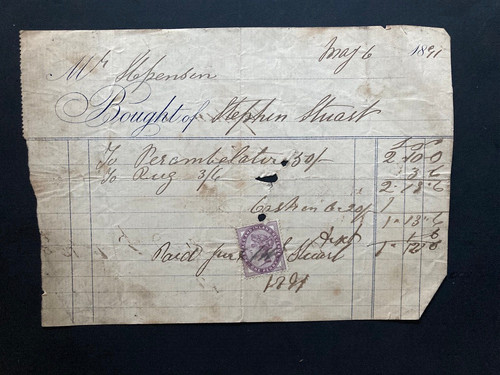 May 6 1891
Mr Spensen
Bought of Stephen Stuart
£ s d
To Perambulator 50/- 2 " 10 " 0
To Rug 3/6 " 3 " 6
2 " 13 " 6
Cash on a/c 20/- 1
1 " 13 " 6
Disct 1 " 6
Paid S Stuart 1 " 12 " 0
1891